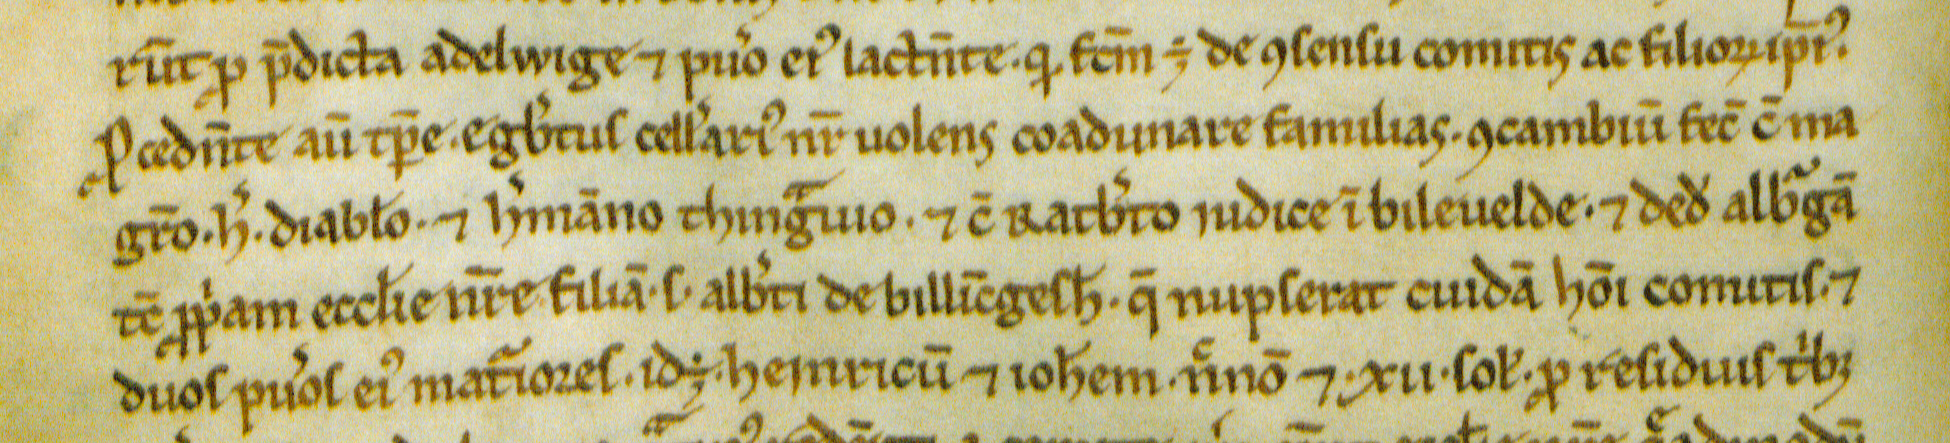 rūt ꝓ p̄dicta adelwige ⁊ puͦo eiꝰ lactn̄te. qͥ fcm̄ ÷ de ꝯsensu comitis ac filioꝝ ipiꝰ.
Ꝓcedn̄te aū tp̄e. egb̓tus cell̓ariꝰ nr̄ uolens coadunare familias. ꝯcambiū fec̄ c̄ ma
gr̄o. h̓. diabl̓o. ⁊ h̓māno thingͣuio. ⁊ c̄ Ratb̓to iudice ī bileuelde. ⁊ ded̓ albͣgā
tc̄ ꝓpͥam eccl̄ie nr̄e filiā. s. alb̓ti de billīcgesh̄. q̄ nupserat cuidā hōi comitis. ⁊
duos pu̓os eiꝰ matͥiores. id÷. heinricū ⁊ ioh̄em. n̓nō ⁊ .xii. sol̓. ꝓ residuis tͥbꝫ